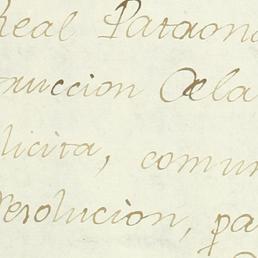 Real Patrona
truccion Dela
licita, comun
Resolucion, pa